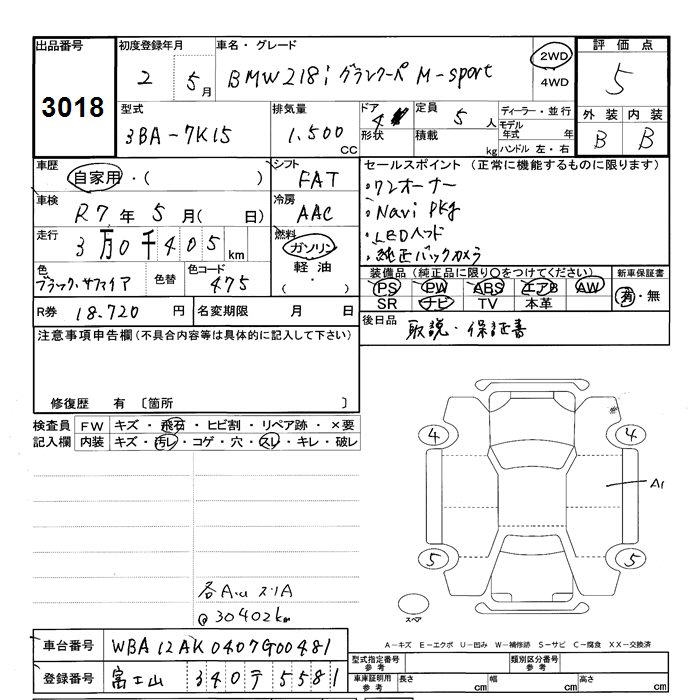 出品番号 初度登録年月 車名・グレード 評価点
3018 2 5月 BMW218i グランクーペ M-sport 2WD 4WD 5
型式 排気量 ドア 定員 ディーラー・並行 外装 内装
3BA-7K15 1.500 CC 4 形状 5人 積載 kg モデル年式 年 ハンドル 左・右 B B
車歴 自家用・( ) シフト FAT セールスポイント (正常に機能するものに限ります)
車検 R7年 5月( 日) 冷房 AAC ・ワンオーナー
・Navi pkg
走行 3万0千405km 燃料 ガソリン 軽油 ( ・ ) ・LEDヘッド
・純正バックカメラ
色 ブラックサファイア 色替 色コード 475 装備品(純正品に限り○をつけてください) 新車保証書
PS PW ABS エアB AW 有・無
SR ナビ TV 本革
R券 18.720円 名変期限 月 日 後日品 取説・保証書
注意事項申告欄(不具合内容等は具体的に記入して下さい)
修復歴 有 〔箇所 〕
検査員 FW キズ・飛石・ヒビ割・リペア跡・×要
記入欄 内装 キズ・汚レ・コゲ・穴・スレ・キレ・破レ
4 4
A1
5 5
スペア
@30402km
A-キズ E-エクボ U-凹み W-補修跡 S-サビ C-腐食 XX-交換済
車台番号 WBA12AK0407G00481 型式指定番号 参考 類別区分番号 参考
登録番号 富士山 340 テ 5581 車庫証明用 参考 長さ cm 幅 cm 高さ cm